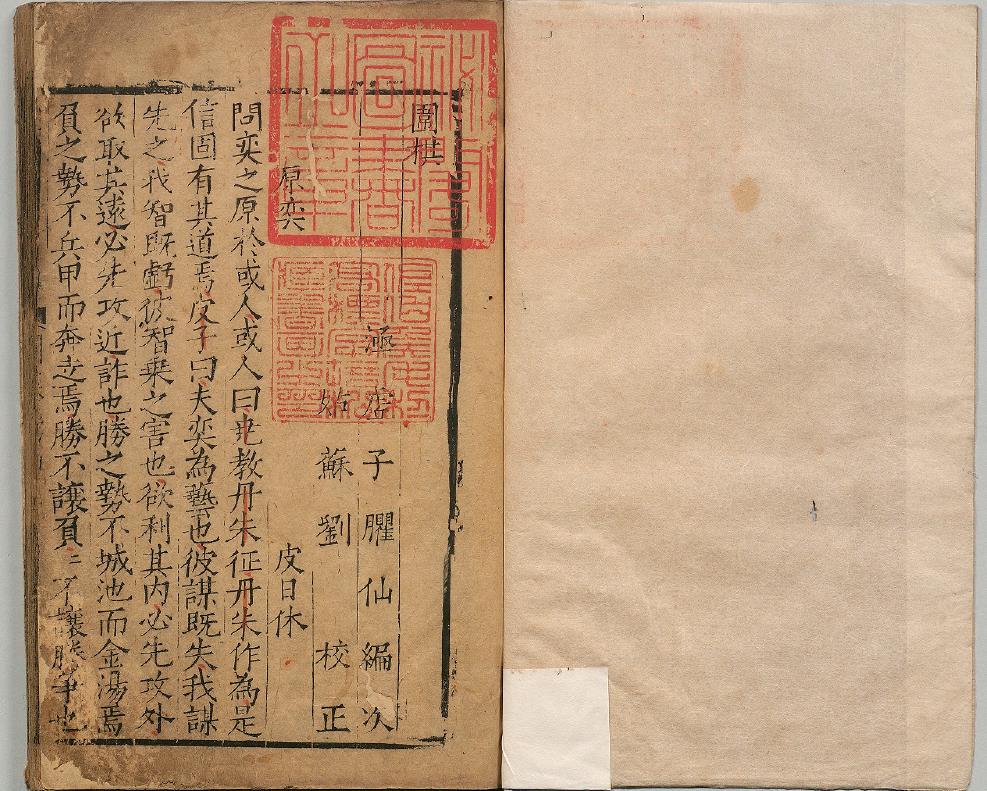 圍棋
涵虛子臞仙編次
姑蘇劉校正
原奕 皮日休
問奕之原於或人或人曰堯教丹朱征丹朱作為是
信固有其道焉皮子曰夫奕為藝也彼謀既失我謀
先之我智既虧彼智乗之害也欲利其内必先攻外
欲取其遠必先攻近詐也勝之勢不城池而金湯焉
負之勢不兵甲而奔走焉勝不讓負〻不讓勝爭也